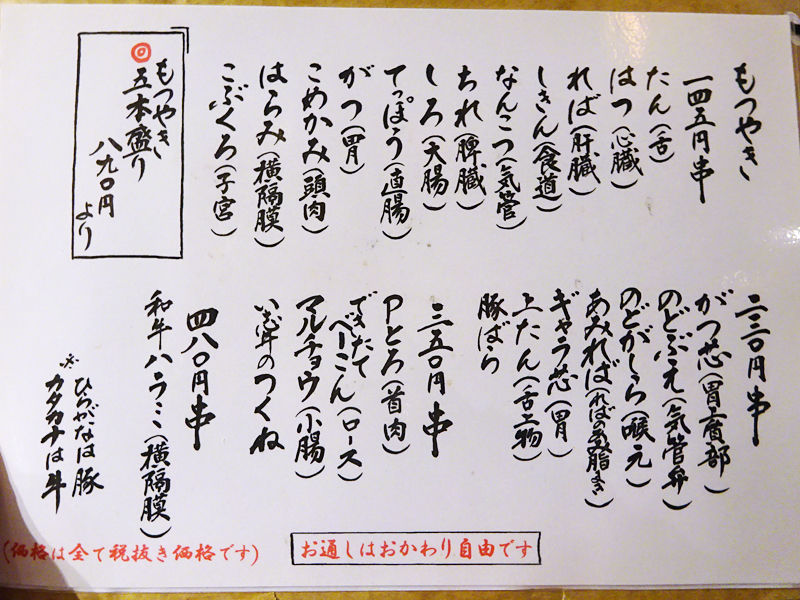 もつやき
一四五円串
たん(舌)
はつ(心臓)
れば(肝臓)
しきん(食道)
なんこつ(気管)
ちれ(脾臓)
しろ(大腸)
てっぽう(直腸)
がつ(胃)
こめかみ(頭肉)
はらみ(横隔膜)
こぶくろ(子宮)
◎もつやき
五本盛り
八九〇円
より
二三〇円串
がつ芯(胃賁部)
のどぶえ(気管弁)
のどがしら(喉元)
あみれば(ればの網脂まき)
ギャラ芯(胃)
上たん(舌上物)
豚ばら
三五〇円串
Pとろ(首肉)
できたて
べーこん(ロース)
マルチョウ(小腸)
のつくね
四八〇円串
和牛ハラミ(横隔膜)
ひらがなは豚
※カタカナは牛
お通しはおかわり自由です
(価格は全て税抜き価格です)